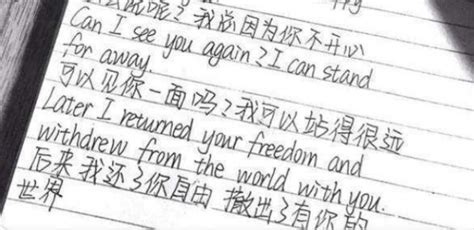 说呢？我总因为你不开心
Can I see you again? I can stand
for away
可以见你一面吗？我可以站得很远
Later I returned your freedom and
withdrew from the world with you.
后来我还了你自由 撤出了有你的
世界